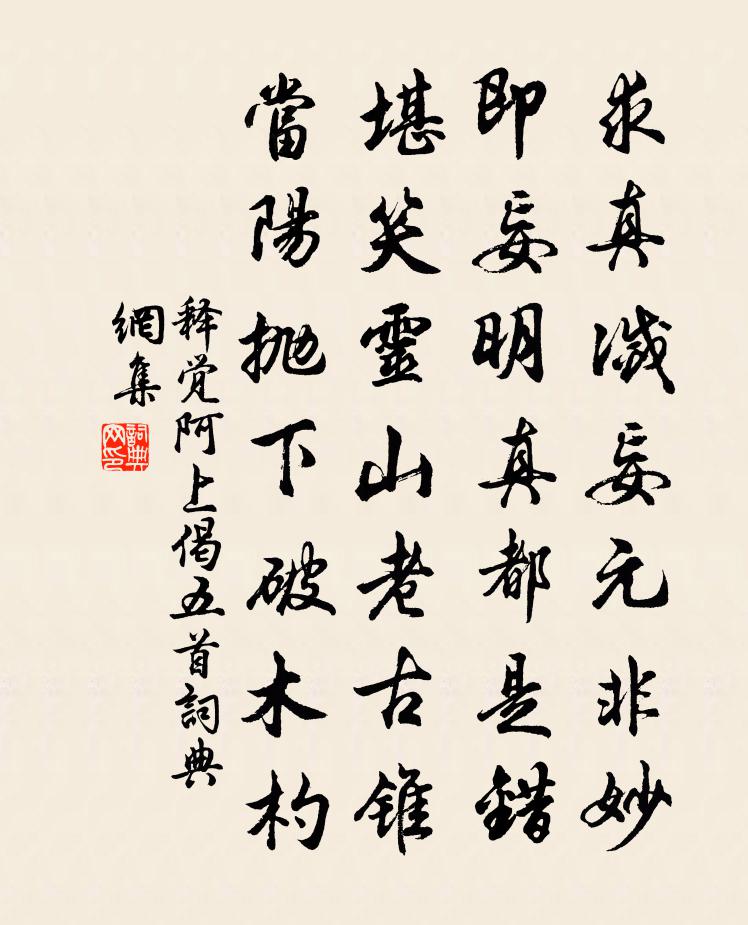 求真滅妄元非妙
即妄明真都是錯
堪笑靈山老古錐
當陽抛下破木杓
释觉阿上偈五首詞典
網集
詞典
网印